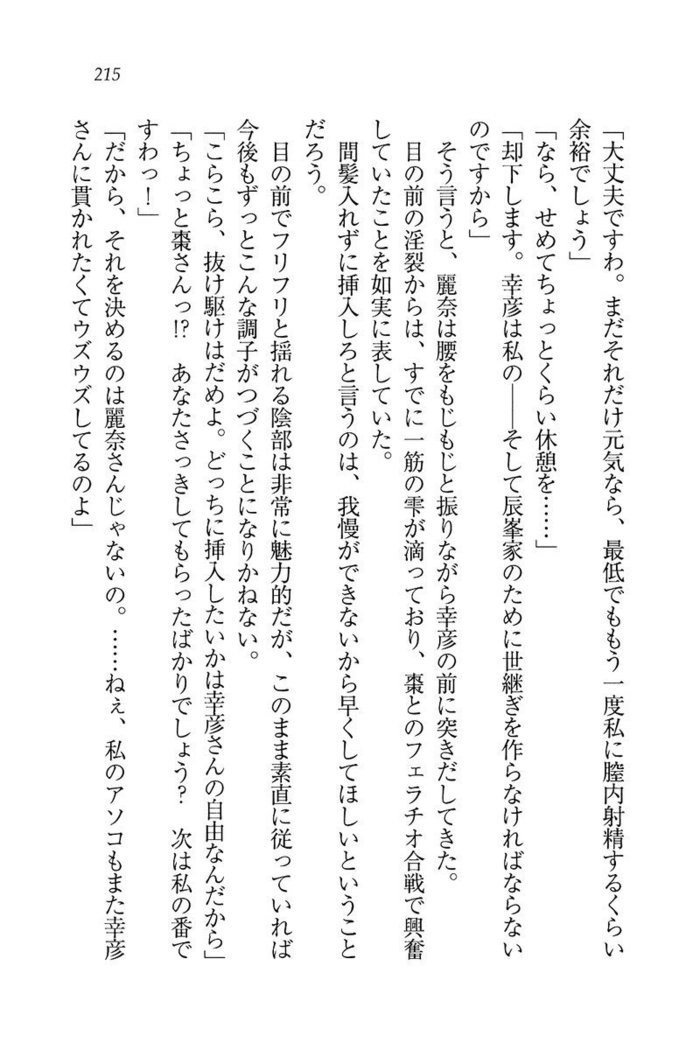 215
「大丈夫ですわ。まだそれだけ元気なら、最低でももう一度私に膣内射精するくらい
余裕でしょう」
「なら、せめてちょっとくらい休憩を……」
「却下します。幸彦は私の――そして辰峯家のために世継ぎを作らなければならない
のですから」
　そう言うと、麗奈は腰をもじもじと振りながら幸彦の前に突きだしてきた。
　目の前の淫裂からは、すでに一筋の雫が滴っており、棗とのフェラチオ合戦で興奮
していたことを如実に表していた。
　間髪入れずに挿入しろと言うのは、我慢ができないから早くしてほしいということ
だろう。
　目の前でフリフリと揺れる陰部は非常に魅力的だが、このまま素直に従っていれば
今後もずっとこんな調子がつづくことになりかねない。
「こらこら、抜け駆けはだめよ。どっちに挿入したいかは幸彦さんの自由なんだから」
「ちょっと棗さんっ!?　あなたさっきしてもらったばかりでしょう？　次は私の番で
すわっ！」
「だから、それを決めるのは麗奈さんじゃないの。……ねぇ、私のアソコもまた幸彦
さんに貫かれたくてウズウズしてるのよ」